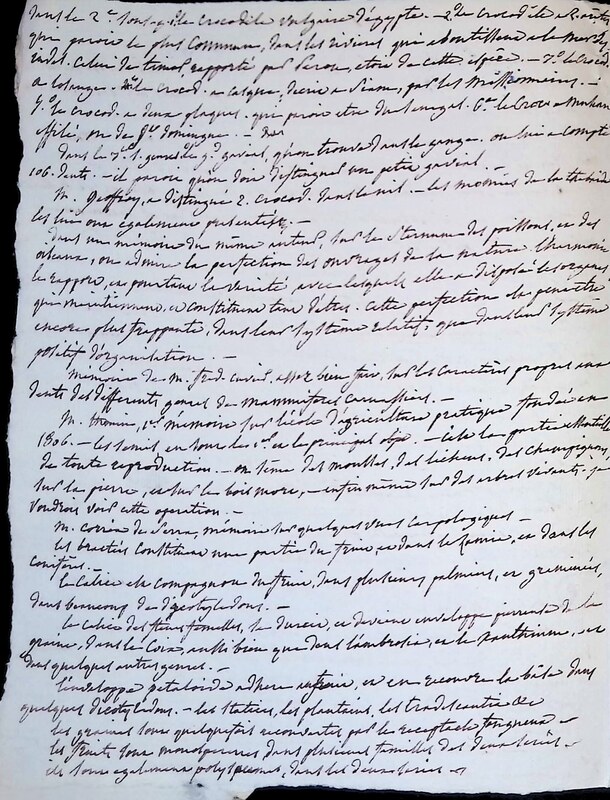 dans le 2e sont, le crocodile vulgaire d'égypte. - 2° le crocodile
qui paroit le plus commun, dans les rivières qui aboutissent à la mer des
indes. celui de timor, rapporté par Peron, est de cette espèce. - 3° le crocod.
a losange. le crocod. a casque, décrit a Siam, par les Missionnaires. -
5° le crocod. a deux plaques. qui paroit être du Senegal. 6° le Croco a museau
effilé, ou de St domingue. -
dans le 3e s. genre le gd gavial, qu'on trouve dans le gange. on lui a compté
106. dents. - il paroit qu'on doit distinguer un petit gavial. -
M. Geoffroy, a distingué 2. crocod. dans le nil. - les momies de la thebaide
les lui ont également présentés. -
dans un mémoire du même auteur, sur le Sternum des poissons, et des
oiseaux, on admire la perfection des ouvrages de la nature l'harmonie
le rapport, et pourtant la variété, avec lesquels elle a disposé les organes
qui maintiennent, et constituent tant d'etres. Cette perfection
encore plus frappante, dans leur système relatif, que dans leur système
positif d'organisation. -
Mémoire de M. fred. cuvier, assez bien fait, sur les caractères propres aux
dents des différents genres de mammifères carnassiers. -
M. thouin, 1er mémoire sur l'école d'agriculture pratique fondée en
1806. - les semis, en sont le 1er et le principal objet. - c'est la partie
de toute reproduction. - on seme des mousses, des lichens, des champignons,
sur la pierre, et sur le bois mort, - enfin même sur des arbres vivants. - je
voudrois voir cette operation. -
M. correa de Serra, mémoire sur quelques vues carpologiques -
les bractées constituent une partie du fruit, et dans le et dans les
conifères. -
le Calice est compagnon du fruit, dans plusieurs palmiers, et graminées,
dans beaucoup de dicotyledons. -
le calice des fleurs femelles, se durcit, et devient enveloppe pierreuse de la
graine, dans le Coix, aussi bien que dans l'ambrosia, et le xanthium, et
dans quelques autres genres. -
l'enveloppe petaloide adhere au fruit, et en recouvre la base dans
quelques dicotyledons. - les statices, les plantains, les tradescantia &c
les graines sont quelquefois recouvertes par le receptacle fongueux -
les fruits sont monospermes, dans plusieurs familles des deux séries -
ils sont egalement polyspermes, dans les deux series -